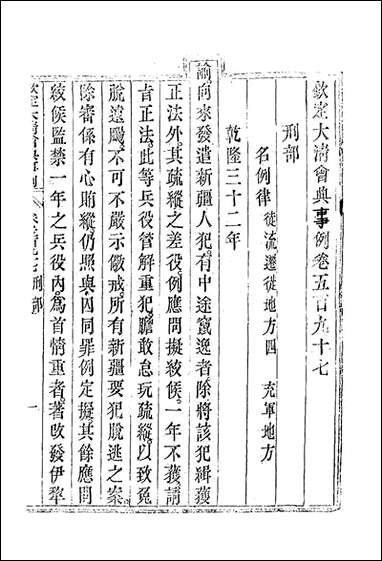 欽定大淸會典事例卷五百九十七
刑部
名例律 徒流遷徙地方四 充軍地方
乾隆三十二年
諭向來發遣新疆人犯有中途竄逸者除將該犯緝獲
正法外其疏縱之差役例應問擬絞候一年不獲請
旨正法此等兵役管解重犯膽敢怠玩疏縱以致兔
脫遠颺不可不嚴示儆戒所有新疆要犯脫逃之案
除審係有心賄縱仍照與囚同罪例定擬其餘應問
絞候監禁一年之兵役內爲首情重者著改發伊犂
欽定大淸會典事例 卷五百九十七 刑部 一